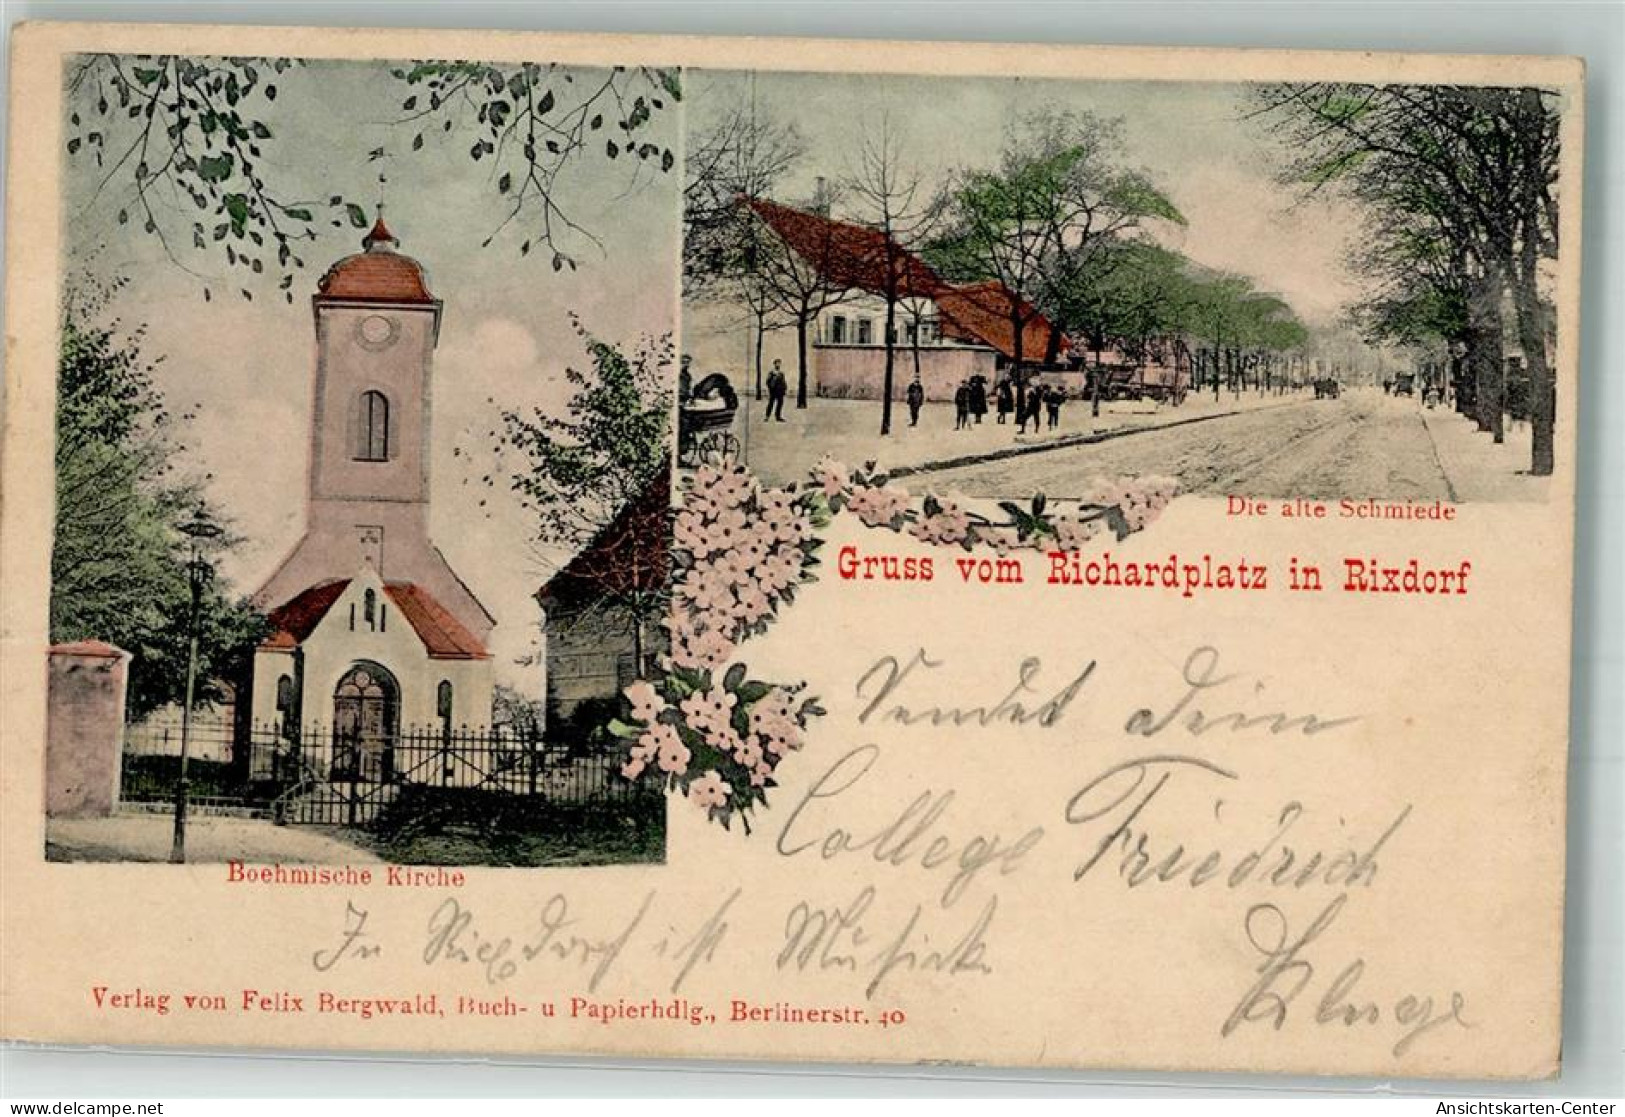 Die alte Schmiede
Gruss vom Richardplatz in Rixdorf
Sendet dein
College Friedrich
Kluge
Boehmische Kirche
In Rixdorf ist Musick
Verlag von Felix Bergwald, Buch- u Papierhdlg., Berlinerstr. 40
delcampe.net
Ansichtskarten-Center